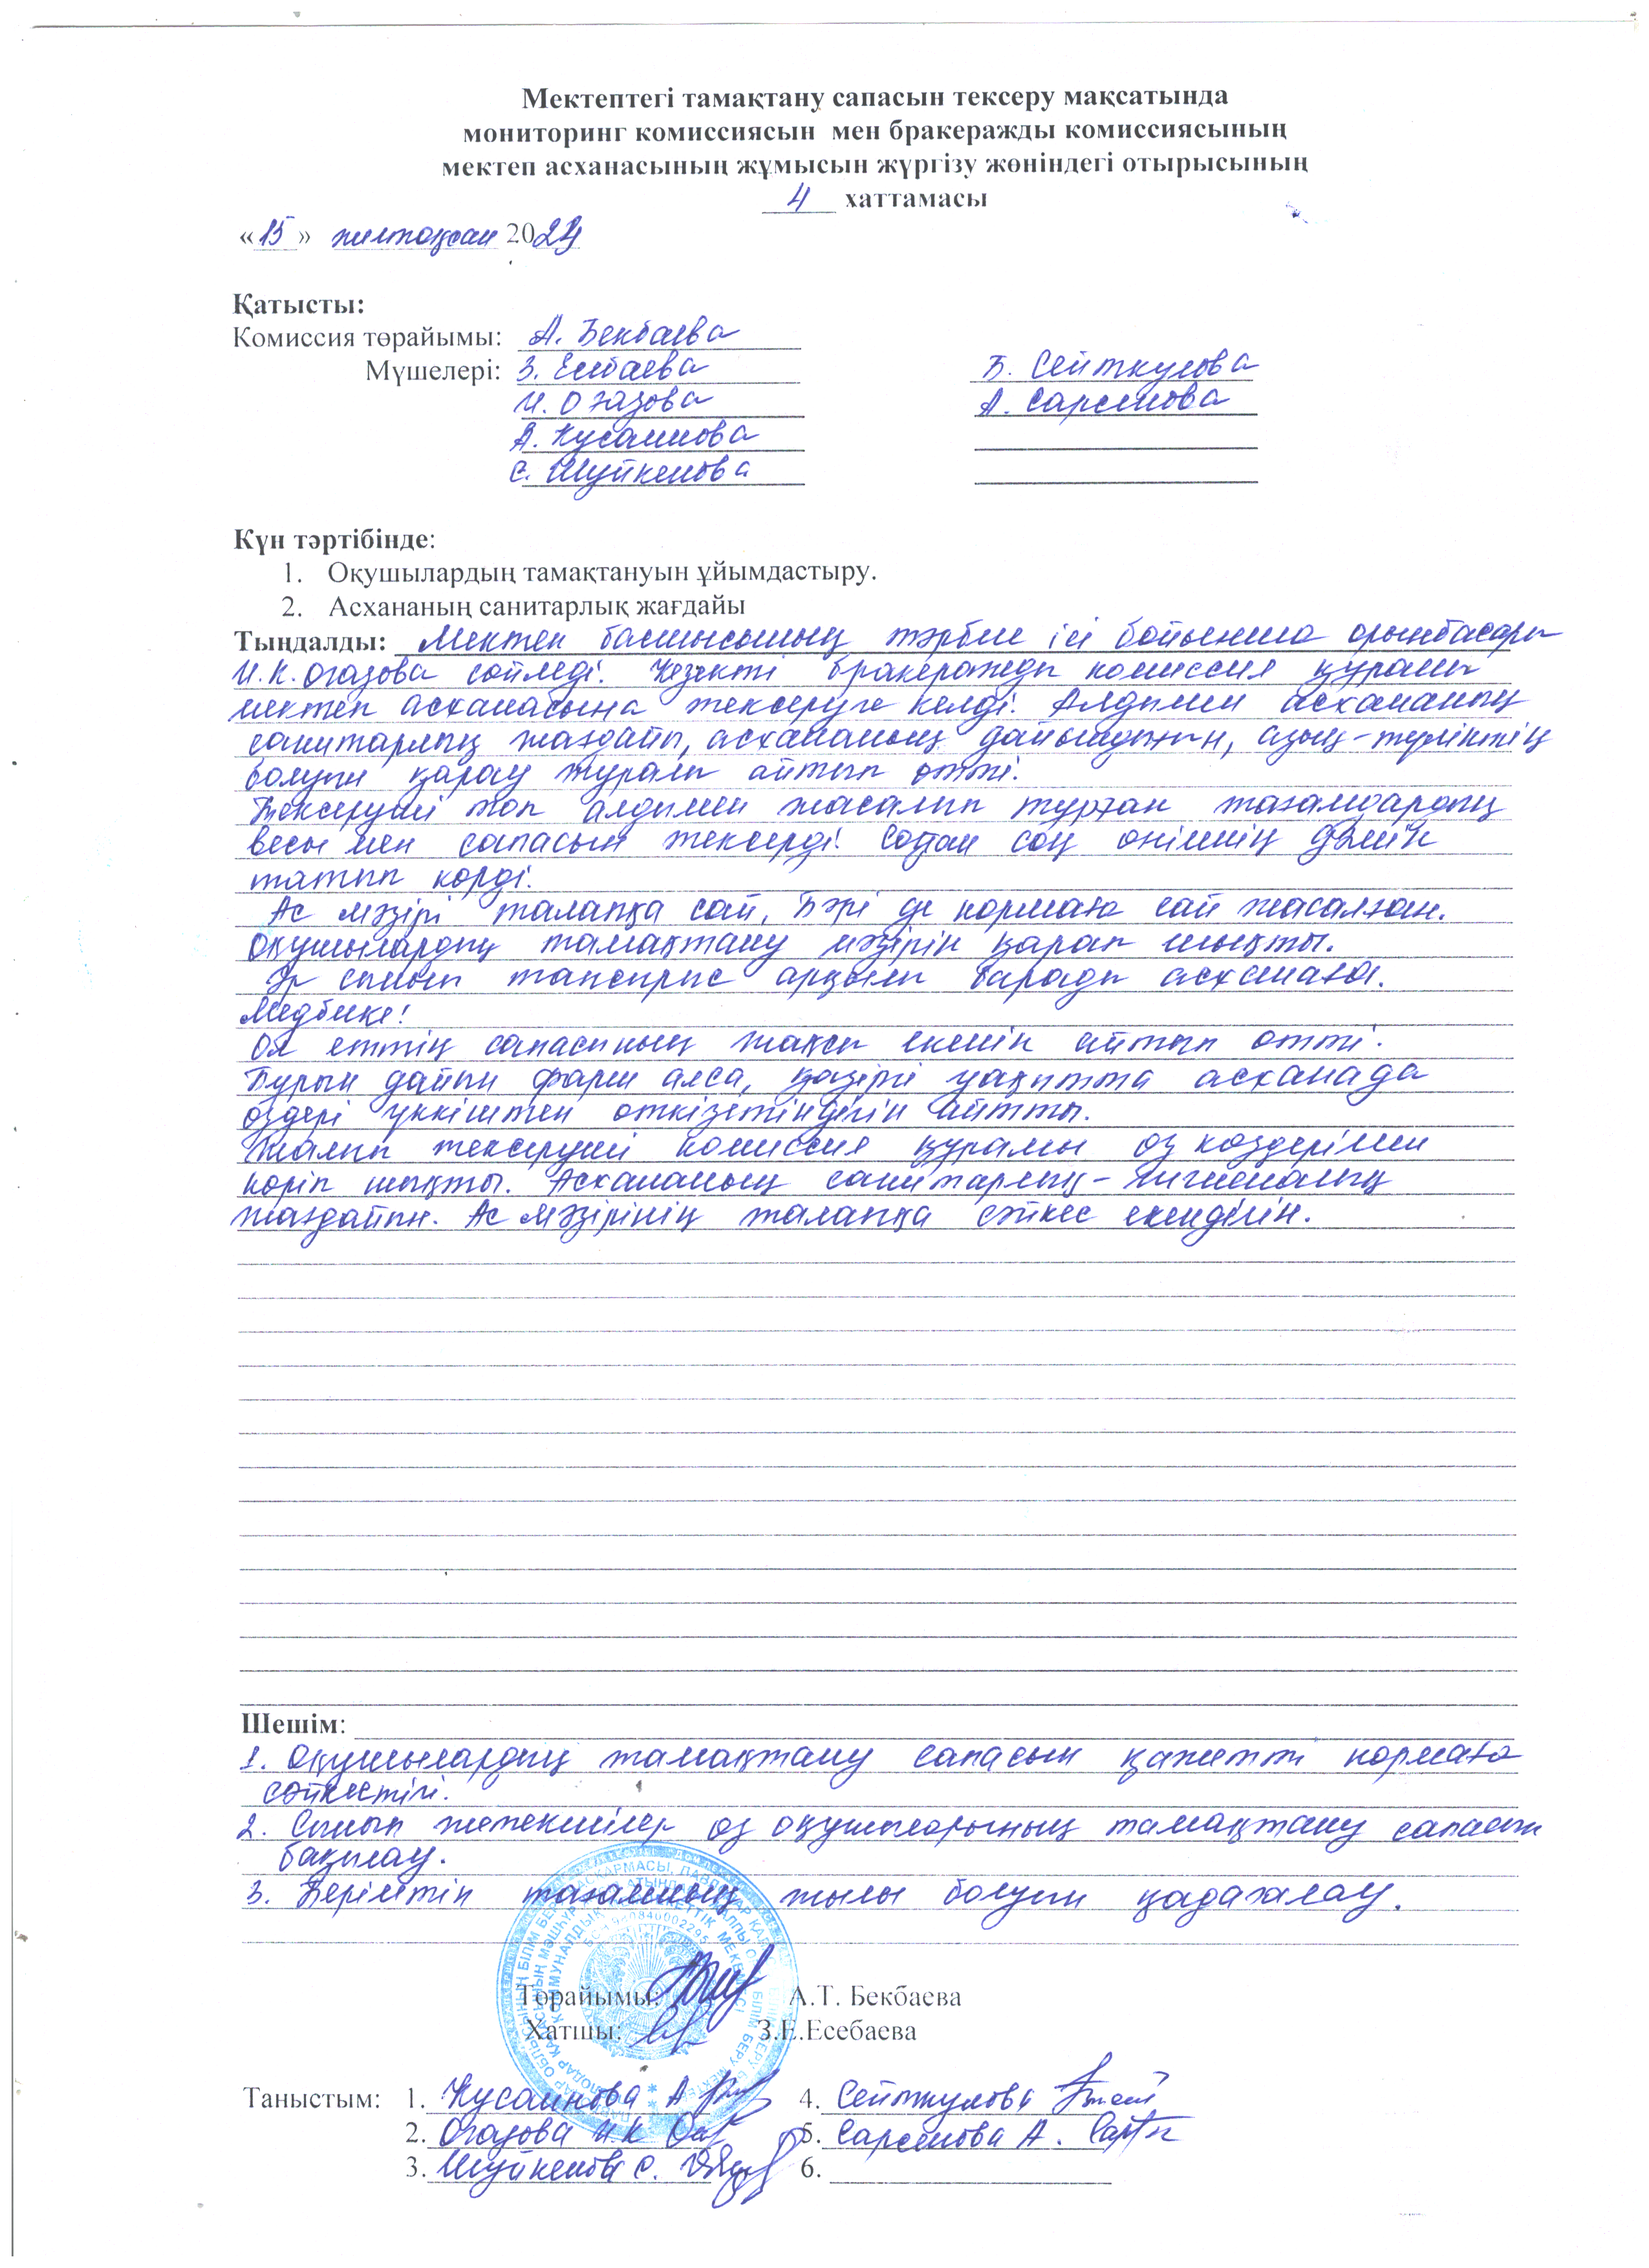 Мектептегі тамақтану сапасын тексеру мақсатында
мониторинг комиссиясын мен бракеражды комиссиясының
мектеп асханасының жұмысын жүргізу жөніндегі отырысының
4 хаттамасы
«15» желтоқсан 2024
Қатысты:
Комиссия төрайымы: А. Бекбаева
Мүшелері: З. Есебаева Б. Сейткулова
И. Оғазова А. Сарсенова
А. Кусаинова
С. Шуйкенова
Күн тәртібінде:
1. Оқушылардың тамақтануын ұйымдастыру.
2. Асхананың санитарлық жағдайы
Тыңдалды: Мектеп басшысының тәрбие ісі бойынша орынбасары
И.К. Оғазова сөйледі. Кезекті бракеражды комиссия құрамы
мектеп асханасына тексеруге келді. Алдымен асхананың
санитарлық жағдайы, асхананың дайындығын, азық-түліктің
болуын қарау туралы айтып өтті.
Тексеруші топ алдымен жасалып тұрған тағамдардың
весы мен сапасын тексерді. Содан соң өнімнің дәмін
татып көрді.
Ас мәзірі талапқа сай, Бәрі де нормаға сай жасалған.
Оқушылардың тамақтану мәзірін қарап шықты.
Әр сынып тапсырыс арқылы барады асханаға.
Медбике:
Ол еттің сапасының жақсы екенін айтып өтті.
Бұрын дайын фарш алса, қазіргі уақытта асханада
өздері үккіштен өткізетіндігін айтты.
Жалпы тексеруші комиссия құрамы өз көздерімен
көріп шықты. Асхананың санитарлық-гигиеналық
жағдайын. Ас мәзірінің талапқа сәйкес екендігін.
Шешім:
1. Оқушылардың тамақтану сапасын қажетті нормаға
сәйкестігі.
2. Сынып жетекшілер өз оқушыларының тамақтану сапасын
бақылау.
3. Берілетін тағамның жылы болуын қадағалау.
Төрайымы: А.Т. Бекбаева
Хатшы: З.Е.Есебаева
Таныстым: 1. Кусаинова А 4. Сейткулова
2. Оғазова И.К 5. Сарсенова А.
3. Шуйкенова С. 6.